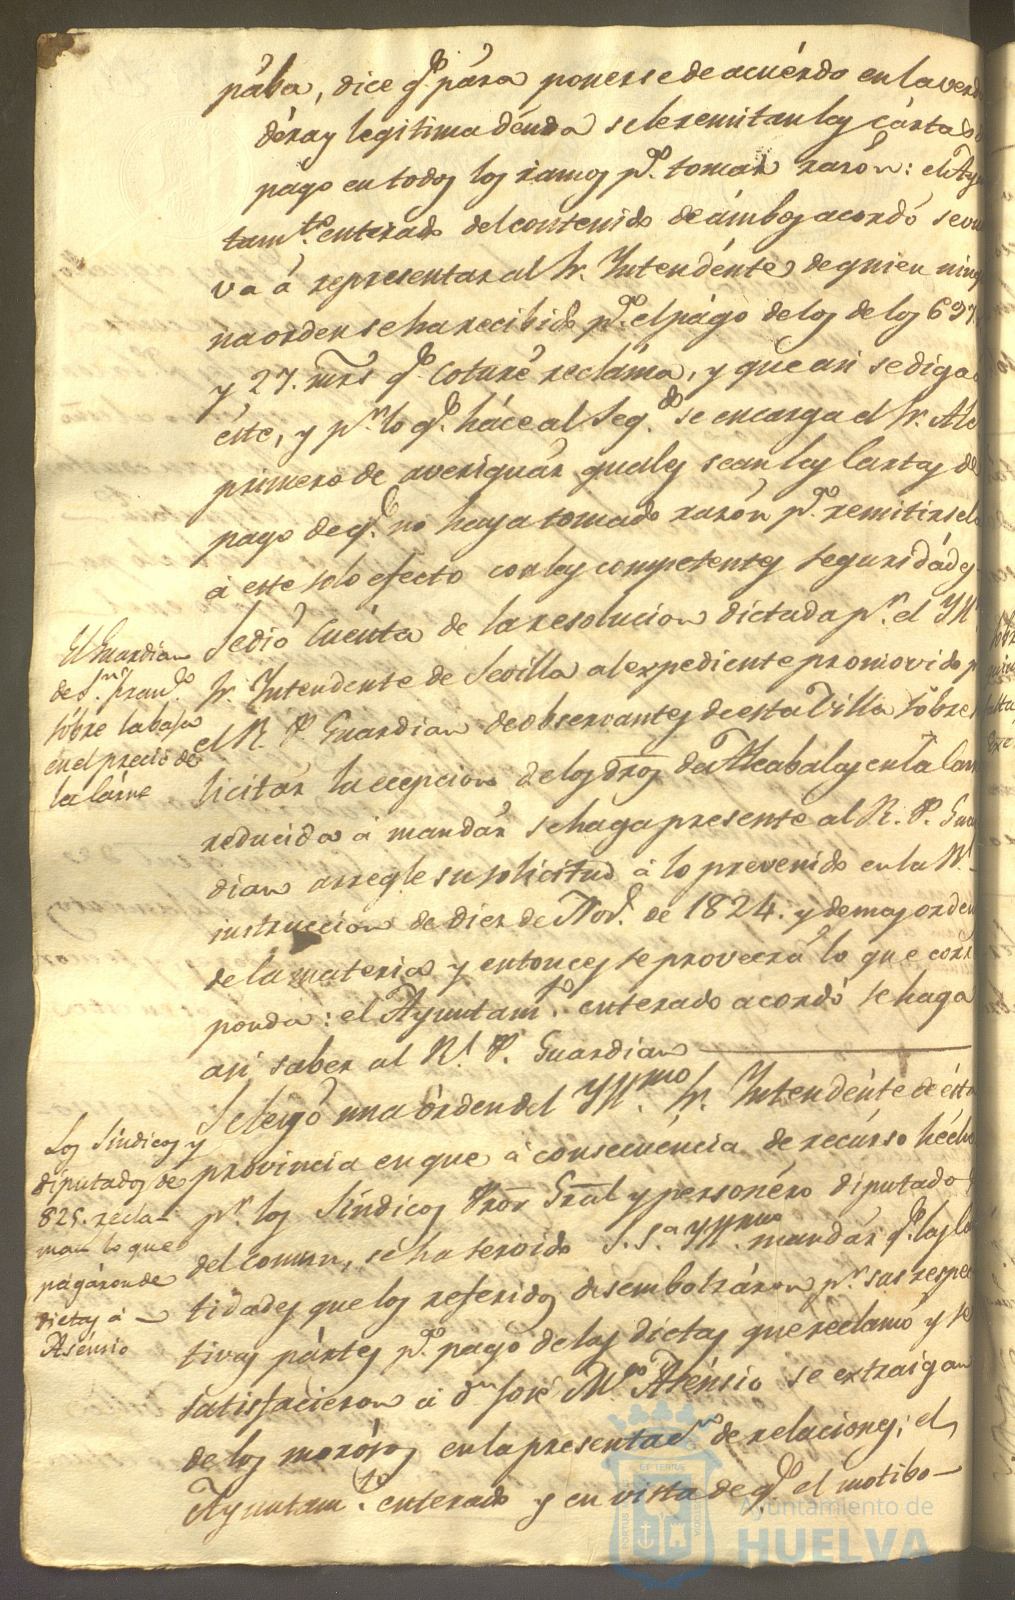 paba, dice qe. pára ponerse de acuérdo en la verda
déra y legitima déuda se le remitan las cartas d
pago en todos los ramos pa. tomar razón: el Ayun
tamto. enterado del contenido de ámbos acordó se vu
va á representar al Sr. Intendénte de quien ningu
na orden se ha recibido pa. el págo de los de los 637
y 27. mrs qe. Coturé reclama, y que así se diga á
éste, y pr. lo qe. háce al segdo. se encarga el Sr. Alc
primero de averiguár quales sean las Cartas de
pago de qe. no haya tomado razón pa. remitirsela
á este solo efecto con las competentes seguridádes
El Guardian
de Sn. Franco.
sóbre la baja
en el precio de
la Cárne
Se dió Cuénta de la resolucion dictada pr. el Yll
Sr. Intendente de Sevilla al expediente promovido p
el R. P. Guardian de observantes de esta Villa sóbre
licitár la ecepcion de los dros de Alcabalas en la Carn
reducida á mandár se haga presente al R. P. Gua
dian arregle su solicitud á lo prevenido en la Rl.
instruccion de diez de Nove. de 1824. y demas orden
de la materia y entonces se proveerá lo que corr
ponda: el Ayuntamto. enterado acordó se haga
así saber al Rl. P. Guardian
Los Síndicos y
diputados de
825. recla-
man lo que
págáron de
dietas á
Asénsio
Se leyó una órden del Yllmo. Sr. Intendénte de ésta
provincia en que á consecuéncia de recúrso hécho
pr. los Síndicos Pror Gral y personéro diputados
del comun, se ha servido S. Sa. Yllma. mandár qe. las Ca
tidades que los referidos desembolzáron pr. sus respec
tivas pártes pa. pago de las dietas que reclamó y se
satisfacieron á Dn José Mo. Asénsio se extraigan
de los morósos en la presentacn. de relaciones; el
Ayuntamto. enterado y en vista de qe. el motibo
Ayuntamiento de
HUELVA